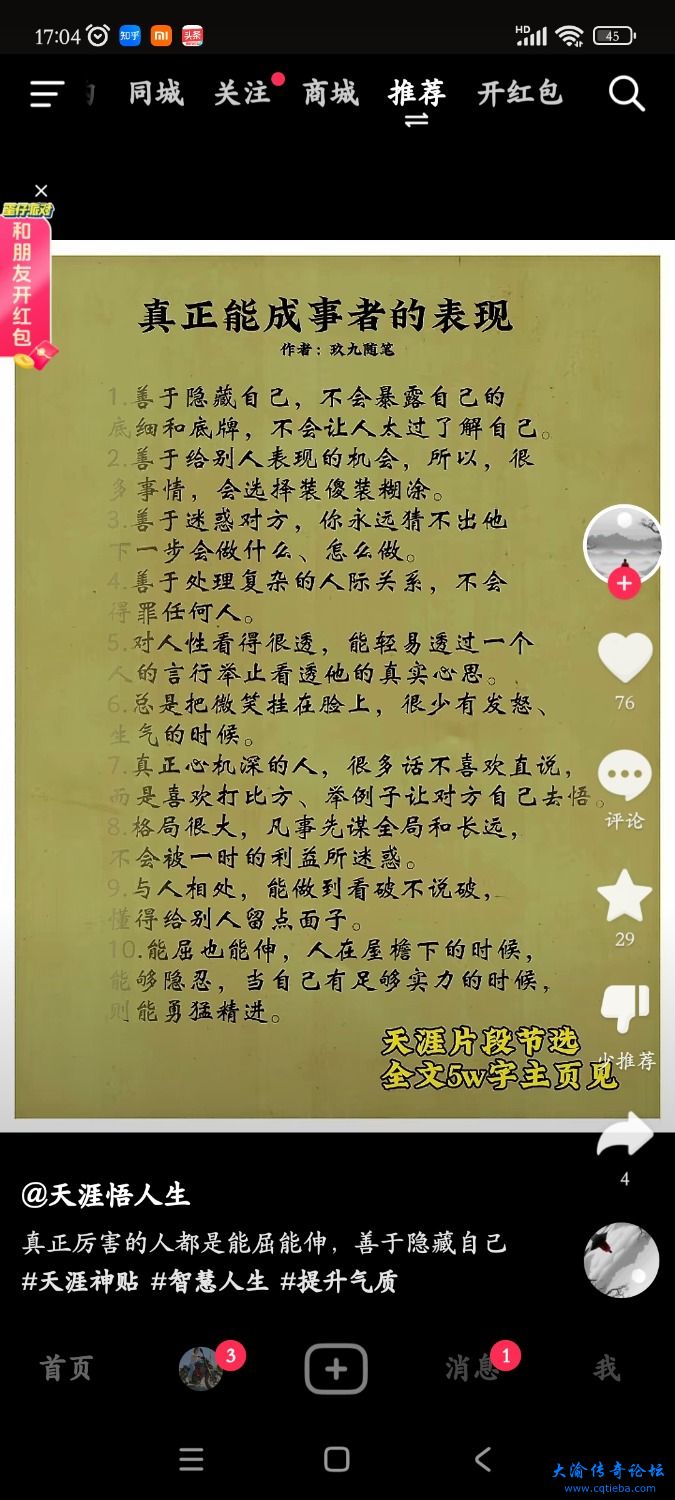 17:04
知乎
头条
HD
45
同城 关注 商城 推荐 开红包
蛋仔派对
和朋友开红包
真正能成事者的表现
作者：玖九随笔
1.善于隐藏自己，不会暴露自己的
底细和底牌，不会让人太过了解自己。
2.善于给别人表现的机会，所以，很
多事情，会选择装傻装糊涂。
3.善于迷惑对方，你永远猜不出他
下一步会做什么、怎么做。
4.善于处理复杂的人际关系，不会
得罪任何人。
5.对人性看得很透，能轻易透过一个
人的言行举止看透他的真实心思。
6.总是把微笑挂在脸上，很少有发怒、
生气的时候。
7.真正心机深的人，很多话不喜欢直说，
而是喜欢打比方、举例子让对方自己去悟。
8.格局很大，凡事先谋全局和长远，
不会被一时的利益所迷惑。
9.与人相处，能做到看破不说破，
懂得给别人留点面子。
10.能屈也能伸，人在屋檐下的时候，
能够隐忍，当自己有足够实力的时候，
则能勇猛精进。
天涯片段节选
全文5w字主页见
76
评论
29
少推荐
4
@天涯悟人生
真正厉害的人都是能屈能伸，善于隐藏自己
#天涯神贴 #智慧人生 #提升气质
首页 3 消息 1 我
大渝传奇论坛
www.cqtieba.com